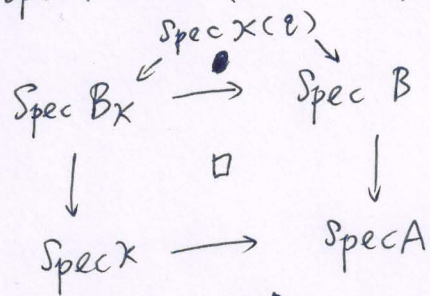 Spec κ(q)
Spec Bκ Spec B
Spec κ Spec A